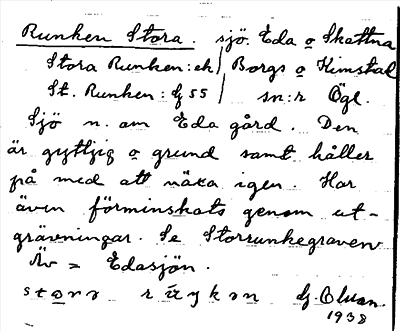 Runken Stora. sjö. Eda o Skattna
Stora Runken: ek / Borgs o Kimstad
St. Runken: Gf 55 / sn:r Ögl.
Sjö n. om Eda gård. Den
är gyttjig o grund samt håller
på med att växa igen. Har
även förminskats genom ut-
grävningar. Se Storrunkegraven
Äv = Edasjön.
1938